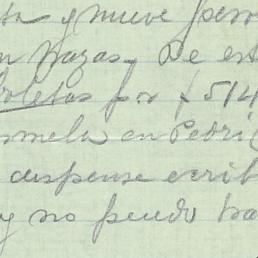 ta y nueve pero
n pagas. De est
oletas por $514
mela en Pedri
dispense escrib
y no puedo ha